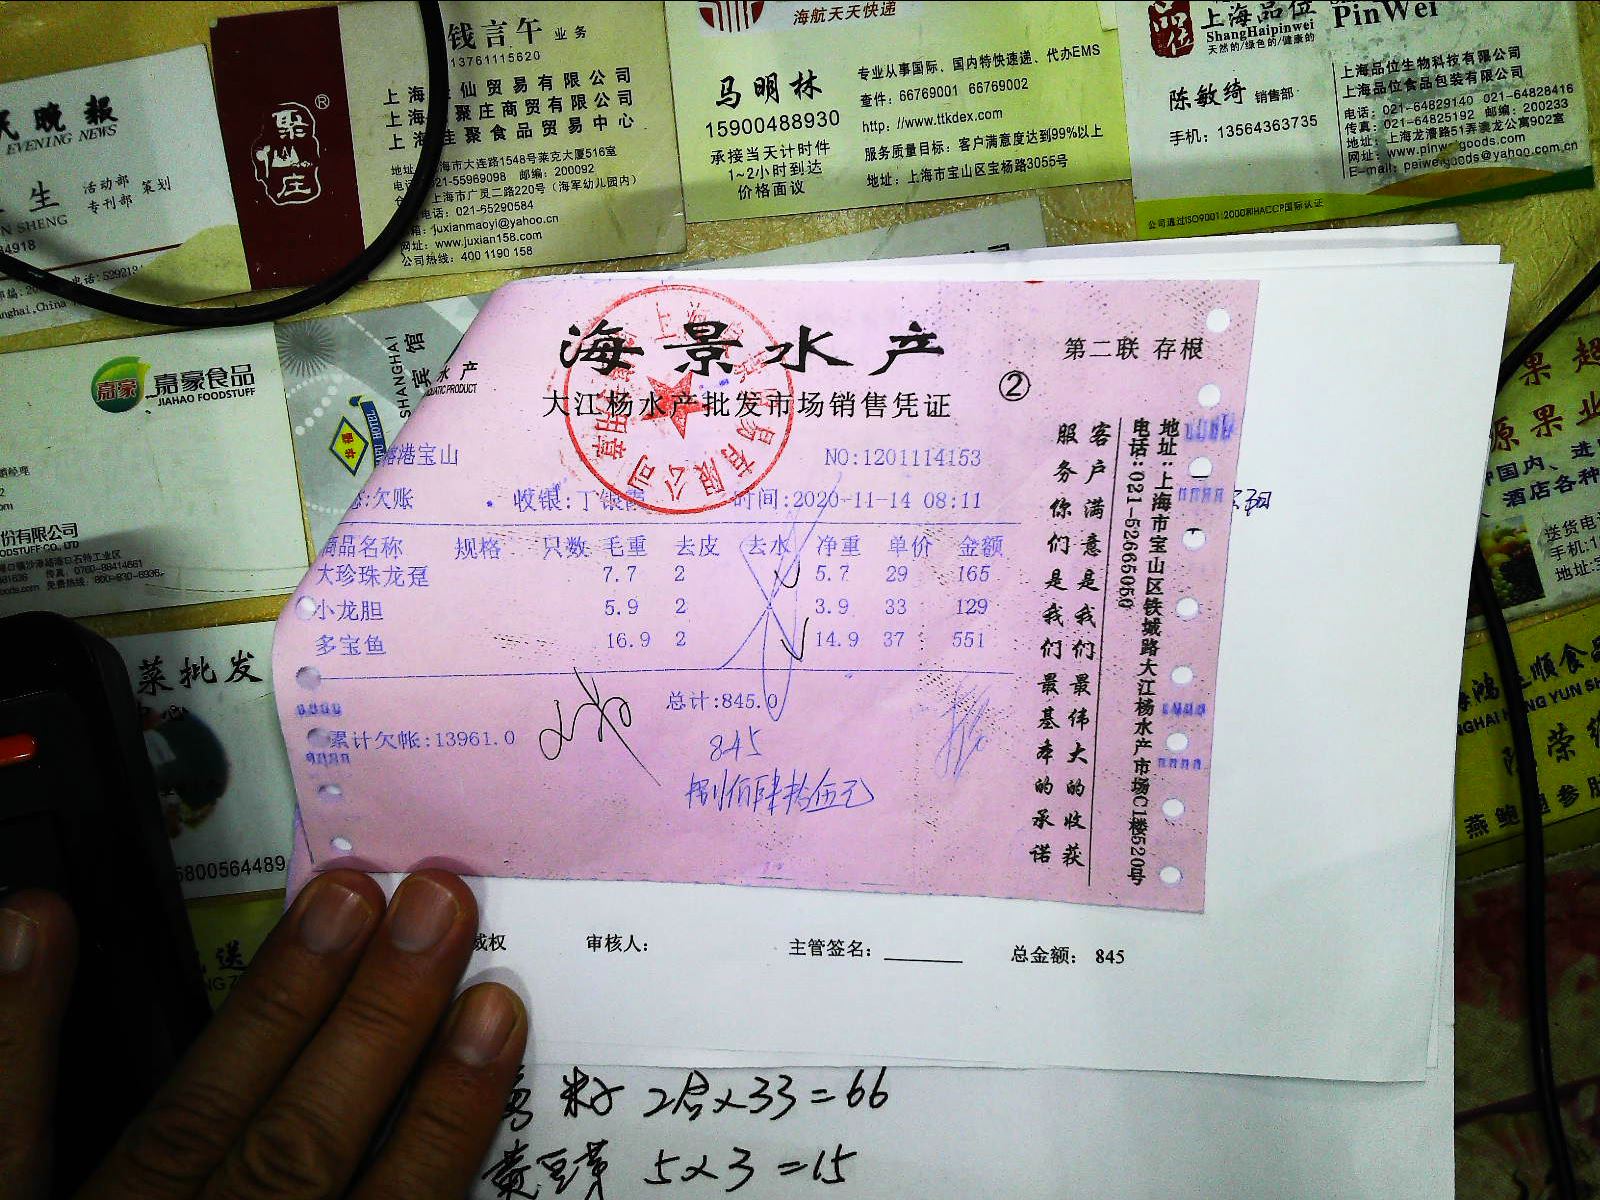 钱言午 业务
13761115620
上海 仙贸易有限公司
上海 聚庄商贸有限公司
上海佳聚食品贸易中心
地址 海市大连路1548号莱克大厦516室
电话 021-55969098 邮编：200092
上海市广灵二路220号（海军幼儿园内）
电话：021-65290584
邮箱：juxianmaoyi@yahoo.cn
网址：www.juxian158.com
公司热线：400 1190 158
聚仙庄
®
晚报
EVENING NEWS
生 活动部 策划
专刊部
SHENG
海航天天快递
马明林
15900488930
承接当天计时件
1~2小时到达
价格面议
专业从事国际、国内特快速递、代办EMS
查件：66769001 66769002
http://www.ttkdex.com
服务质量目标：客户满意度达到99%以上
地址：上海市宝山区宝杨路3055号
品位
上海品位
ShangHaipinwei
天然的/绿色的/健康的
PinWei
陈敏绮 销售部
手机：13564363735
上海品位生物科技有限公司
上海品位食品包装有限公司
电话：021-64829140 021-64828416
传真：021-64825192 邮编：200233
地址：上海龙漕路51弄澳龙公寓902室
网址：www.pinweigoods.com
E-mail：peiweigoods@yahoo.com.cn
公司通过ISO9001:2000和HACCP国际认证
嘉豪
嘉豪食品
JIAHAO FOODSTUFF
份有限公司
SHANGHAI
宾馆
水产
海景水产
大江杨水产批发市场销售凭证
②
第二联 存根
港宝山
NO:1201114153
:欠账 收银:丁银霞 时间:2020-11-14 08:11
商品名称 规格 只数 毛重 去皮 去水 净重 单价 金额
大珍珠龙趸 7.7 2 5.7 29 165
小龙胆 5.9 2 3.9 33 129
多宝鱼 16.9 2 14.9 37 551
总计:845.0
累计欠帐:13961.0
845
捌佰肆拾伍元
客户满意是我们最伟大的收获
服务你们是我们最基本的承诺
地址：上海市宝山区铁城路大江杨水产市场C1楼520号
电话：021-52665050
菜批发
中心
5800564489
权
审核人：
主管签名：
总金额： 845
2×33=66
黄豆芽 5×3=15
果超
源果业
中国内、进
酒店各种
送货电
手机:1
地址:
顺食品
陈荣
燕鲍 参
送